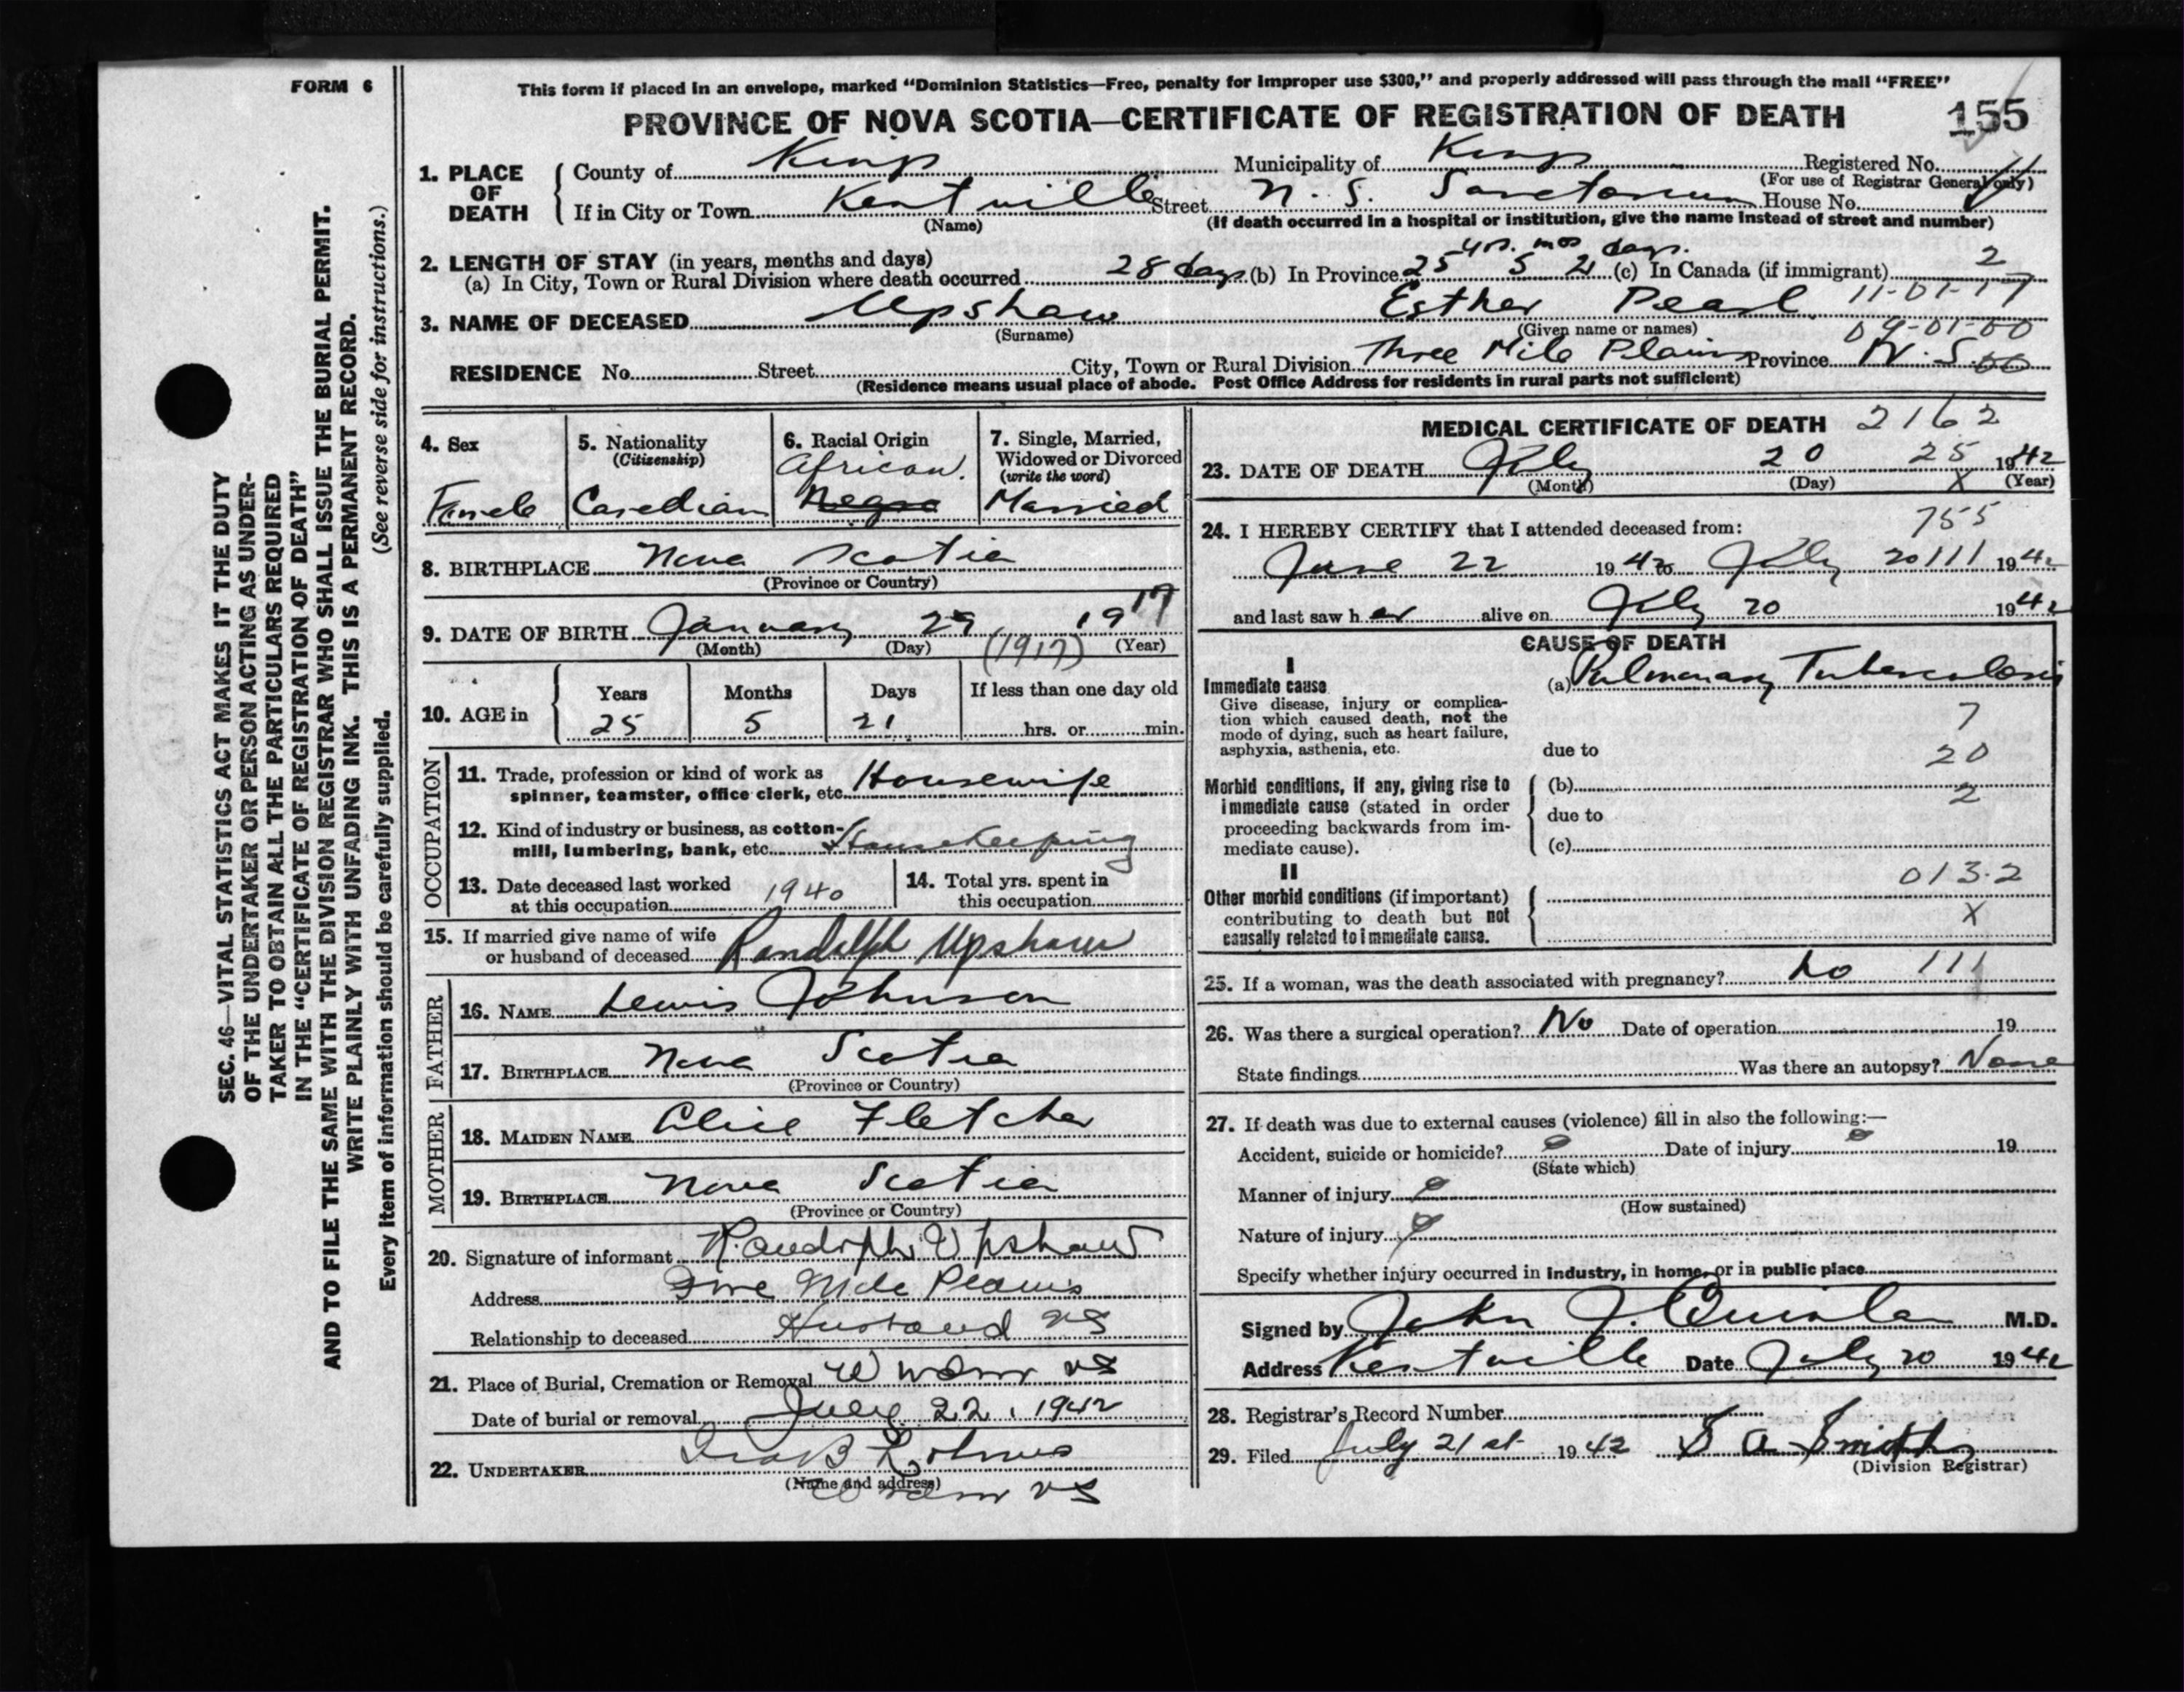 FORM 6
This form if placed in an envelope, marked “Dominion Statistics—Free, penalty for improper use $300,” and properly addressed will pass through the mail “FREE”
PROVINCE OF NOVA SCOTIA—CERTIFICATE OF REGISTRATION OF DEATH 155
1. PLACE OF DEATH
County of Kings Municipality of Kings Registered No.
(For use of Registrar General only)
If in City or Town Kentville Street N. S. Sanatorium House No.
(Name) (If death occurred in a hospital or institution, give the name instead of street and number)
2. LENGTH OF STAY (in years, months and days) yrs. mos days.
(a) In City, Town or Rural Division where death occurred 28 days (b) In Province 25 5 21 (c) In Canada (if immigrant) 2
3. NAME OF DECEASED Upshaw Esther Pearl 11-01-17
(Surname) (Given name or names) 09-01-00
RESIDENCE No. Street City, Town or Rural Division Three Mile Plains Province N. S. 00
(Residence means usual place of abode. Post Office Address for residents in rural parts not sufficient)
4. Sex
Female
5. Nationality
(Citizenship)
Canadian
6. Racial Origin
African.
Negro
7. Single, Married,
Widowed or Divorced
(write the word)
Married
8. BIRTHPLACE Nova Scotia
(Province or Country)
9. DATE OF BIRTH January 29, 1917
(Month) (Day) (1917) (Year)
10. AGE in
Years Months Days If less than one day old
25 5 21 hrs. or min.
OCCUPATION
11. Trade, profession or kind of work as
spinner, teamster, office clerk, etc. Housewife
12. Kind of industry or business, as cotton-
mill, lumbering, bank, etc. Housekeeping
13. Date deceased last worked
at this occupation 1940
14. Total yrs. spent in
this occupation
15. If married give name of wife
or husband of deceased Randolph Upshaw
FATHER
16. NAME Lewis Johnson
17. BIRTHPLACE Nova Scotia
(Province or Country)
MOTHER
18. MAIDEN NAME Alice Fletcher
19. BIRTHPLACE Nova Scotia
(Province or Country)
20. Signature of informant Randolph Upshaw
Address Mile Plains
Relationship to deceased Husband NS
21. Place of Burial, Cremation or Removal Windsor NS
Date of burial or removal July 22, 1942
22. UNDERTAKER
(Name and address)
Windsor NS
MEDICAL CERTIFICATE OF DEATH 2162
23. DATE OF DEATH July 20 25 1942
(Month) (Day) X (Year)
24. I HEREBY CERTIFY that I attended deceased from: 755
June 22 1942 to July 20 111 1942
and last saw her alive on July 20 1942
CAUSE OF DEATH
I
Immediate cause
Give disease, injury or complica-
tion which caused death, not the
mode of dying, such as heart failure,
asphyxia, asthenia, etc.
(a) Pulmonary Tuberculosis
7
due to
20
Morbid conditions, if any, giving rise to
immediate cause (stated in order
proceeding backwards from im-
mediate cause).
(b) 2
due to
(c)
II
Other morbid conditions (if important)
contributing to death but not
causally related to immediate cause.
013.2
X
25. If a woman, was the death associated with pregnancy? No 111
26. Was there a surgical operation? No Date of operation 19
State findings Was there an autopsy? None
27. If death was due to external causes (violence) fill in also the following:—
Accident, suicide or homicide? Date of injury 19
(State which)
Manner of injury
(How sustained)
Nature of injury
Specify whether injury occurred in industry, in home, or in public place
Signed by John J. Quinlan M.D.
Address Kentville Date July 20 1942
28. Registrar's Record Number
29. Filed July 21st 1942 Smith
(Division Registrar)
SEC. 46—VITAL STATISTICS ACT MAKES IT THE DUTY
OF THE UNDERTAKER OR PERSON ACTING AS UNDER-
TAKER TO OBTAIN ALL THE PARTICULARS REQUIRED
IN THE “CERTIFICATE OF REGISTRATION OF DEATH”
AND TO FILE THE SAME WITH THE DIVISION REGISTRAR WHO SHALL ISSUE THE BURIAL PERMIT.
WRITE PLAINLY WITH UNFADING INK. THIS IS A PERMANENT RECORD.
(See reverse side for instructions.)
Every item of information should be carefully supplied.